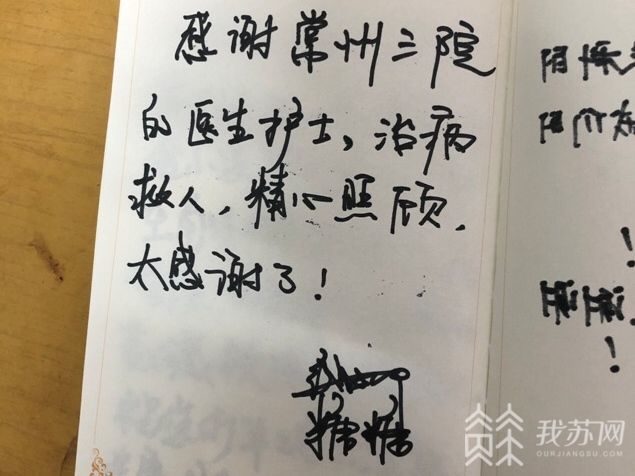 感谢常州三院
的医生护士，治病
救人，精心照顾.
太感谢了！
糖糖
！
！
我苏网
OURJIANGSU.COM